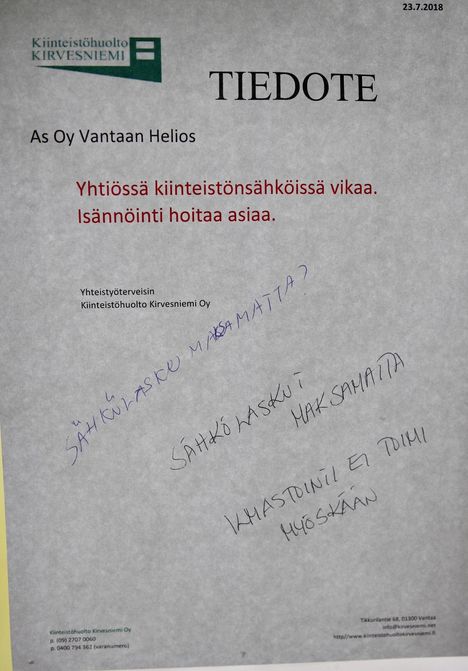 23.7.2018
Kiinteistöhuolto
KIRVESNIEMI
TIEDOTE
As Oy Vantaan Helios
Yhtiössä kiinteistönsähköissä vikaa.
Isännöinti hoitaa asiaa.
Yhteistyöterveisin
Kiinteistöhuolto Kirvesniemi Oy
SÄHKÖLASKU MAKSAMATTA?
SÄHKÖLASKUT
MAKSAMATTA
ILMASTOINTI EI TOIMI
MYÖSKÄÄN
Kiinteistöhuolto Kirvesniemi Oy
p. (09) 2707 0060
p. 0400 794 362 (varanumero)
Tikkurilantie 68, 01300 Vantaa
info@kirvesniemi.net
http//www.kiinteistohuoltokirvesniemi.fi